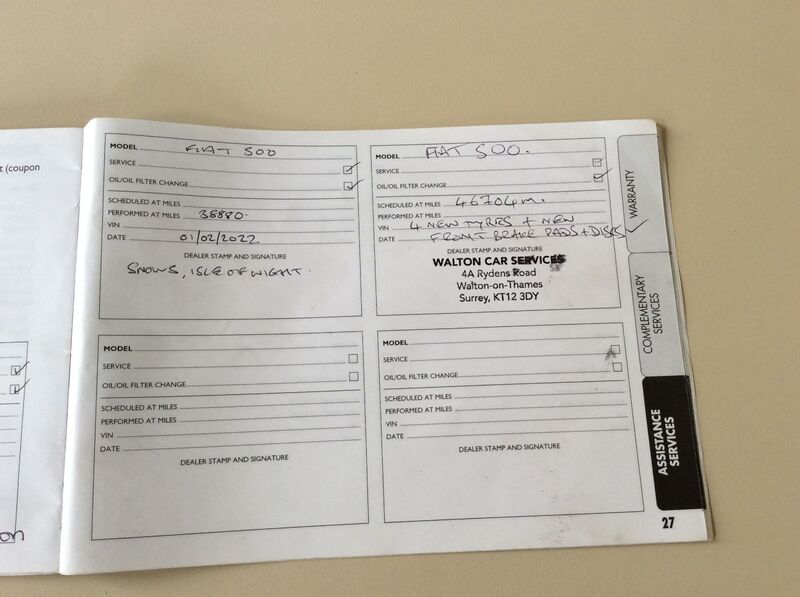 t (coupon
MODEL FIAT 500
SERVICE
OIL/OIL FILTER CHANGE
SCHEDULED AT MILES
PERFORMED AT MILES 38880.
VIN
DATE 01/02/2022
DEALER STAMP AND SIGNATURE
SNOWS, ISLE OF WIGHT.
MODEL FIAT 500.
SERVICE
OIL/OIL FILTER CHANGE
SCHEDULED AT MILES 46704m.
PERFORMED AT MILES
VIN 4 NEW TYRES + NEW
DATE FRONT BRAKE PADS + DISKS
DEALER STAMP AND SIGNATURE
WALTON CAR SERVICES
4A Rydens Road
Walton-on-Thames
Surrey, KT12 3DY
MODEL
SERVICE
OIL/OIL FILTER CHANGE
SCHEDULED AT MILES
PERFORMED AT MILES
VIN
DATE
DEALER STAMP AND SIGNATURE
MODEL
SERVICE
OIL/OIL FILTER CHANGE
SCHEDULED AT MILES
PERFORMED AT MILES
VIN
DATE
DEALER STAMP AND SIGNATURE
WARRANTY
COMPLEMENTARY
SERVICES
ASSISTANCE
SERVICES
27
on